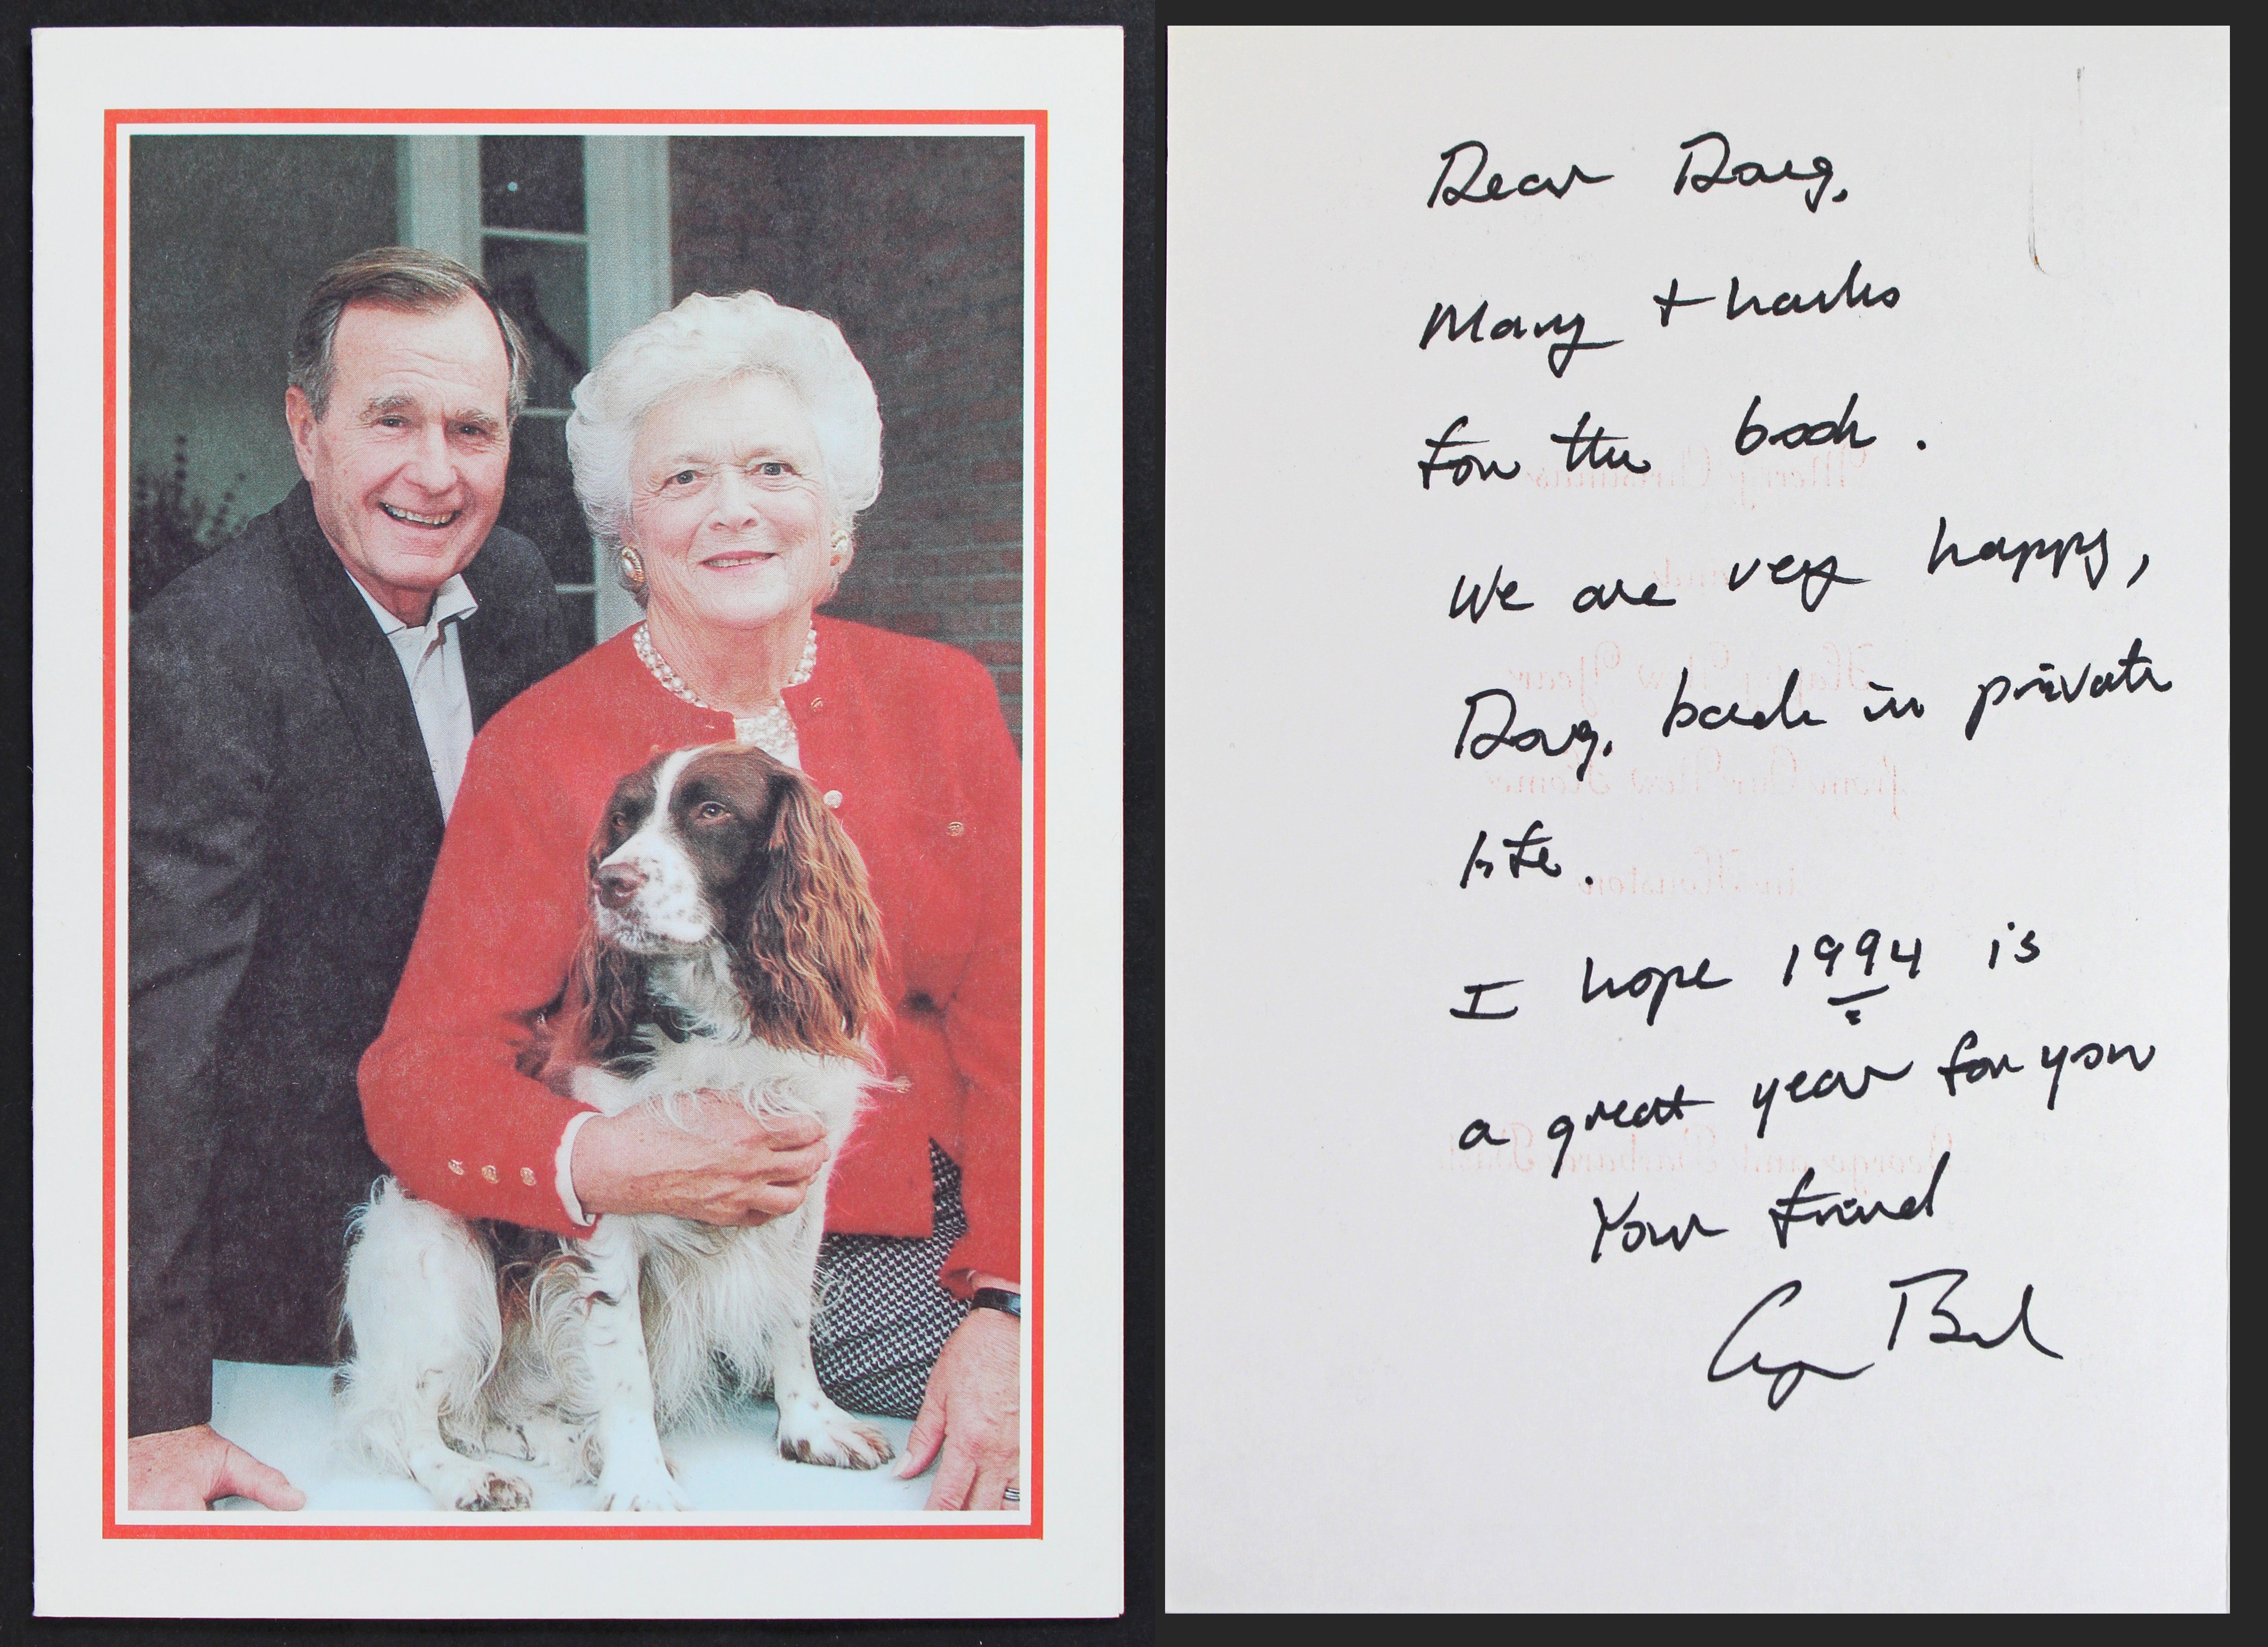 Dear Doug,
Many thanks
for the book.
We are very happy,
Doug, back in private
life.
I hope 1994 is
a great year for you
Your friend
George Bush